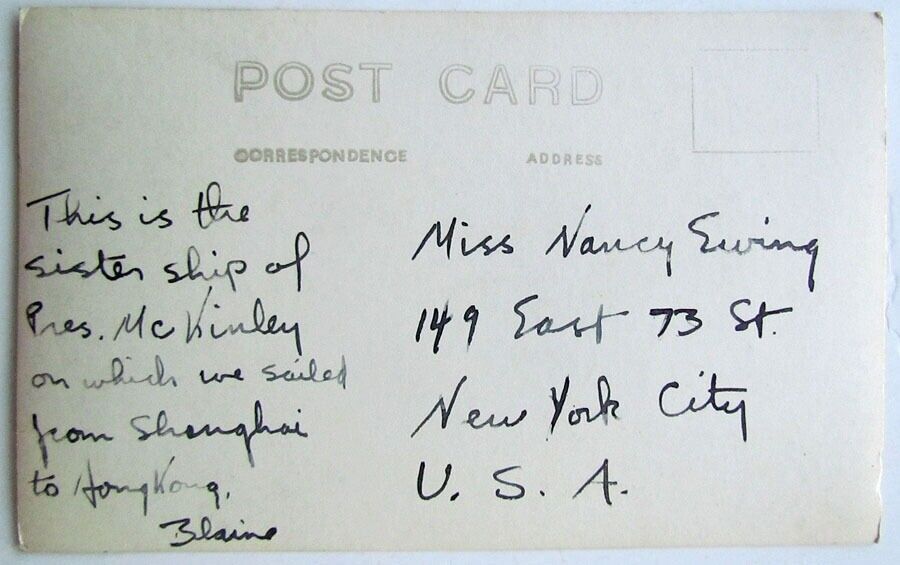 POST CARD
CORRESPONDENCE
ADDRESS
This is the
sister ship of
Pres. McKinley
on which we sailed
from Shanghai
to HongKong.
Blaine
Miss Nancy Ewing
149 East 73 St.
New York City
U. S. A.